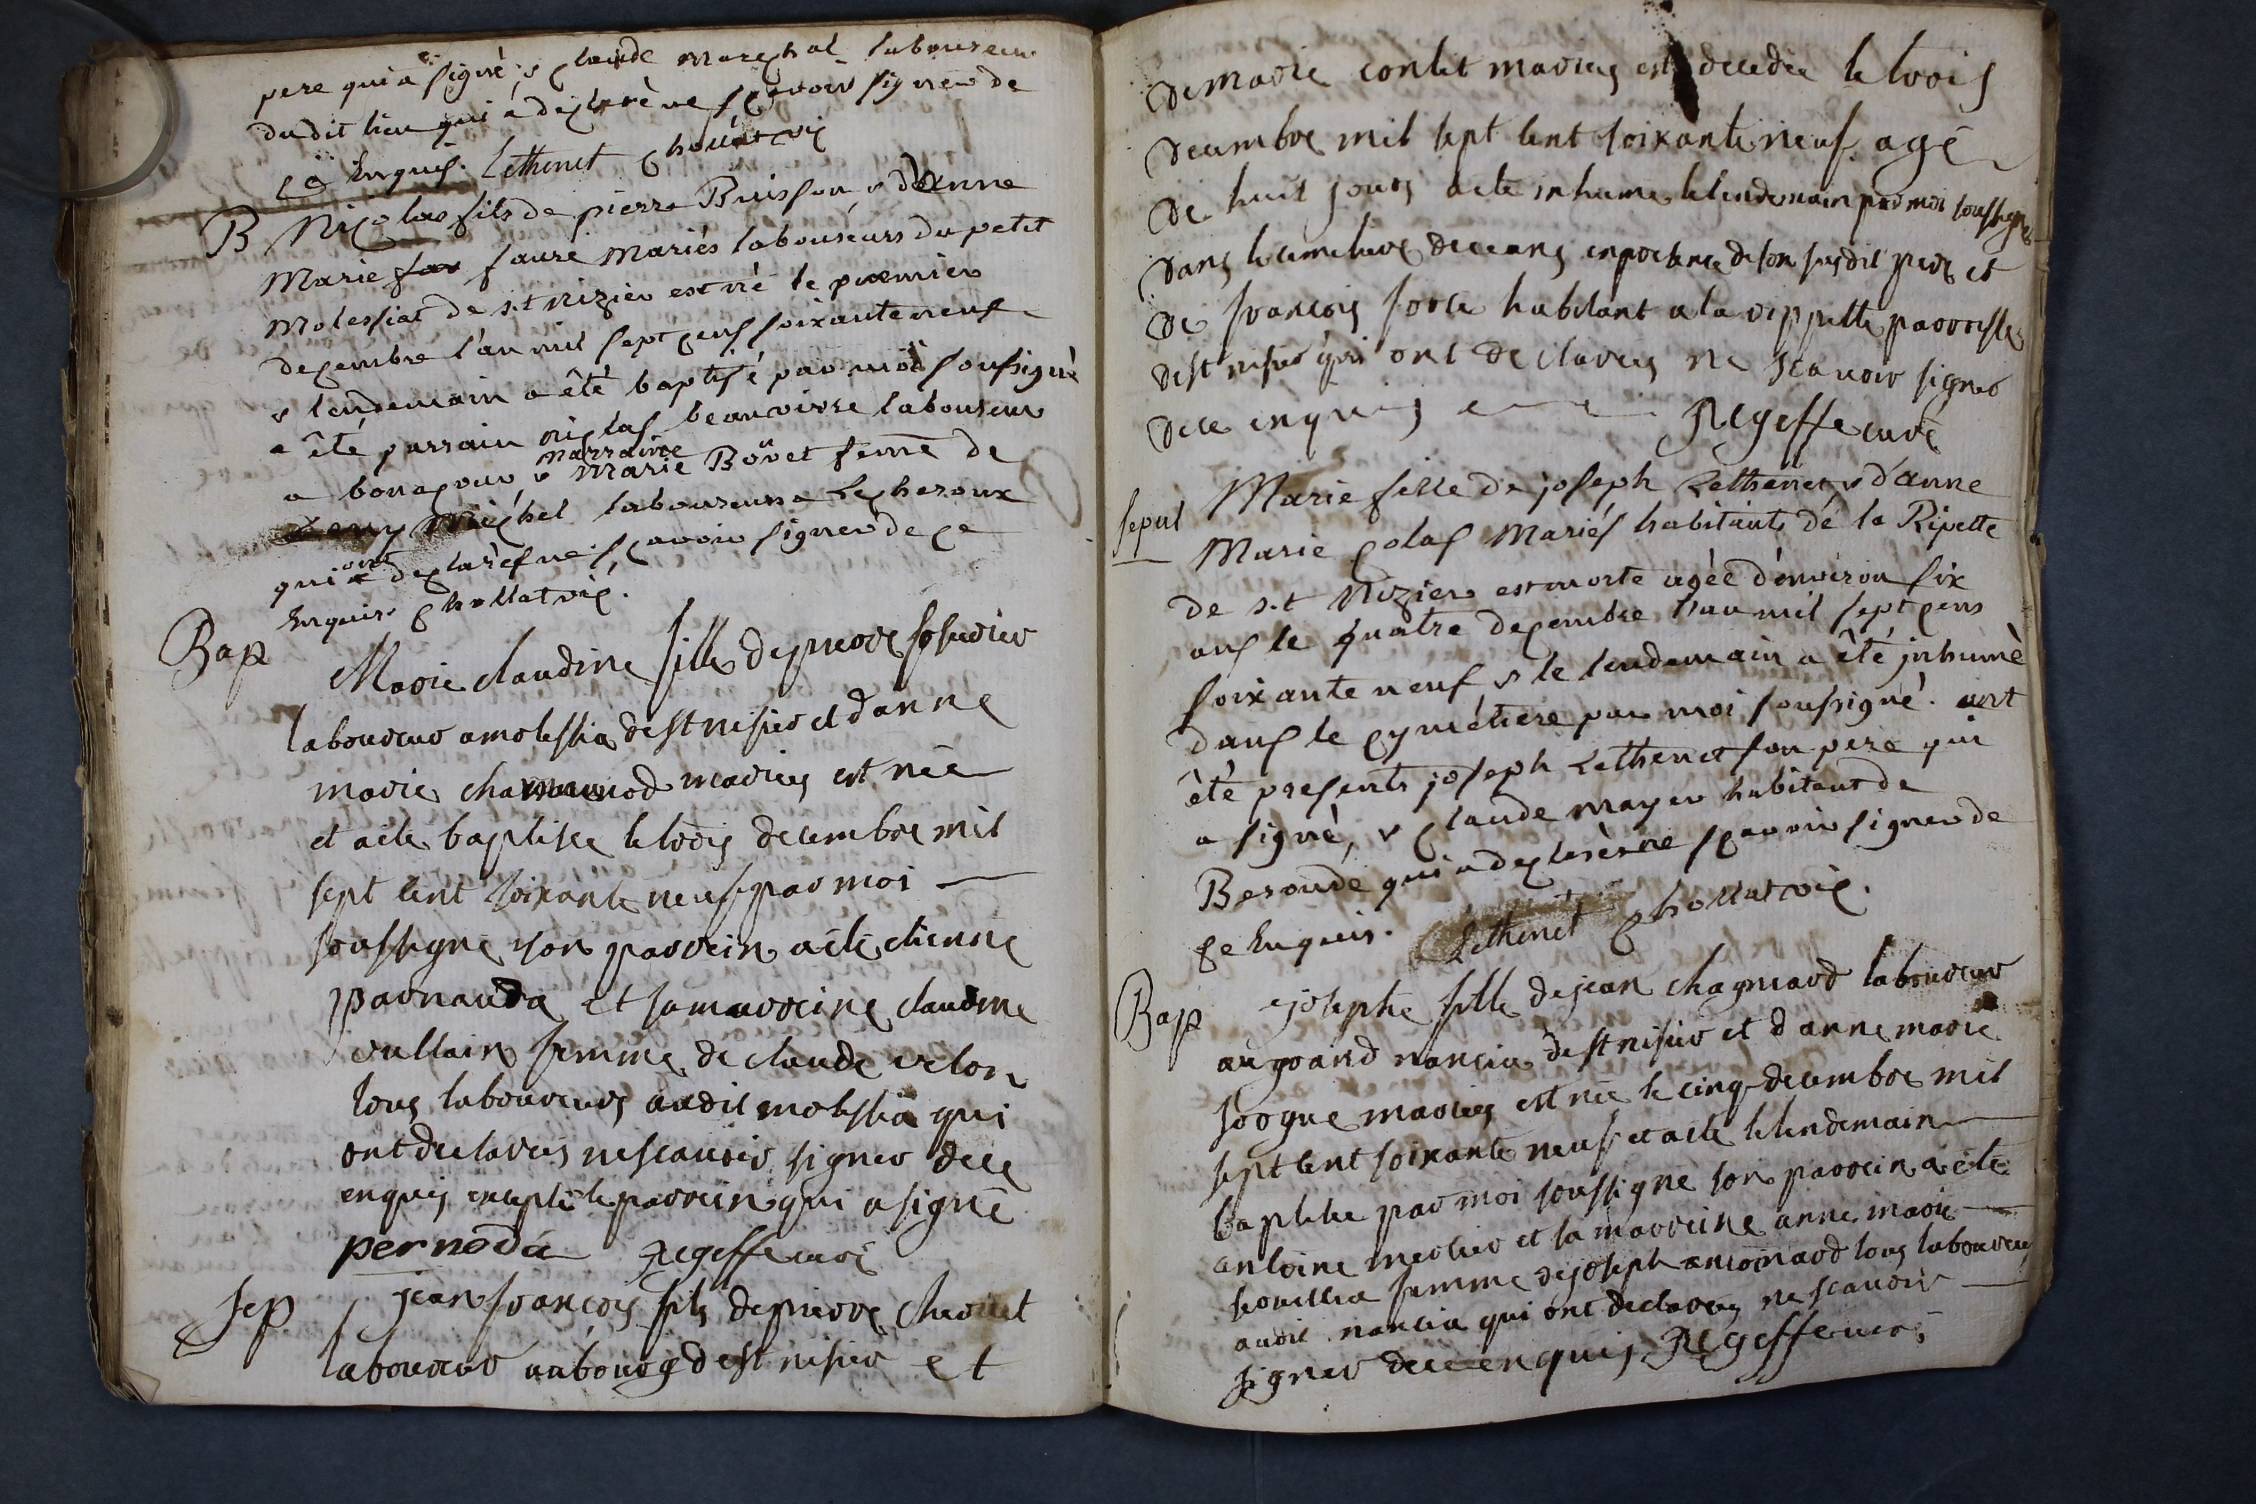 pere qui a signé, & claude marechal laboureur
du dit lieu qui a declaré ne scavoir signer de
ce Enquis. Lethenet chollat vic
B Nicolas fils de pierre Buisson, & d'Anne
Marie faure Mariés laboureurs du petit
Molessiat de s.t Nizier est né le premier
decembre l'an mil sept cens soixante neuf
& lendemain a été baptisé par moi soussigné
a été parrain niclas beauvivre laboureur
a bonacour, & marraine Marie Böuet feme de
michel laboureurs a Lecheroux
qui ont declarés ne scavoir signer de ce
Enquis. chollat vic.
Bap
Marie claudine fille de pierre
laboureur a molessia de st nisier et danne
marie mod mariés est née
et a ete baptisee le trois decembre mil
sept cent soixante neuf par moi
soussigne son parrein a été etienne
parnauda et sa marreine claudine
vullain femme de claude velon
tous laboureurs audit molessia qui
ont declarés ne scavoir signer de ce
enquis excepté le parrein qui a signé
pernoda Regeffe curé
Sep jean francois fils de pierre
laboureur au bourg de st nisier et
de marie contet mariés est decedée le trois
decembre mil sept cent soixante neuf agé
de huit jours a ete inhumé le lendemain par moi soussigné
dans le cimetiere de ceans en presence de son susdit pere et
de francois habitant a la rippette parroisse
de st nisier qui ont declarés ne scavoir signer
de ce enquis Regeffe curé
sepul Marie fille de joseph Lethenet, & d'anne
Marie colas Mariés habitants de la Ripette
de s.t Nizier est morte agée d'environ six
ans le quatre decembre l'an mil sept cens
soixante neuf & le lendemain a été inhumè
dans le cymétiere par moi soussigné. ont
été presents joseph Lethenet son pere qui
a signé, & claude mayer habitant de
Beroude qui a declaré ne scavoir signer de
ce Enquis. Lethenet chollat vic.
Bap josephe fille de jean chagneard laboureur
au grand nancia de st nisier et d anne marie
sorgue mariés est née le cinq decembre mil
sept cent soixante neuf et a ete le lendemain
baptisee par moi soussigné son parrein a été
antoine mercier et sa marreine anne marie
femme de joseph tous laboureurs
audit nancia qui ont declarés ne scavoir
signer de ce enquis Regeffe curé